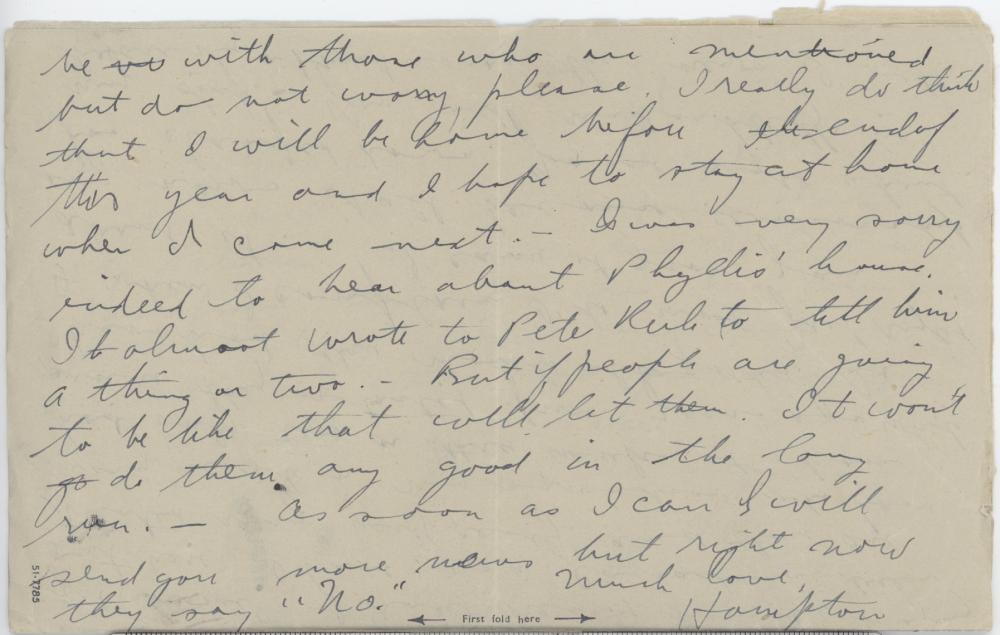 be with those who are mentioned
but do not worry, please. I really do think
that I will be home before the end of
this year and I hope to stay at home
when I come next. — I was very sorry
indeed to hear about Phyllis' house.
I almost wrote to Pete to tell him
a thing or two. — But if people are going
to be like that well let them. It won't
do them any good in the long
run. — As soon as I can I will
send you more news but right now
they say "No." Much love,
Hampton
First fold here
51-7785